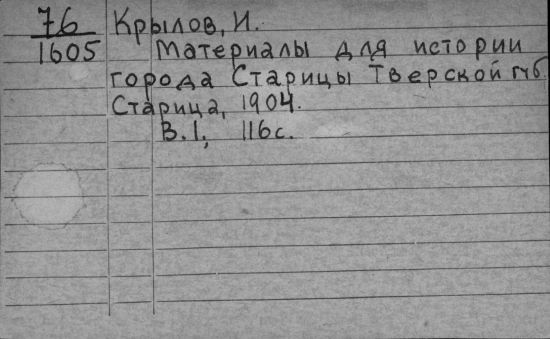 76 Крылов, И.
1605 Материалы для истории
города Старицы Тверской губ
Старица, 1904.
В.1, 116с.